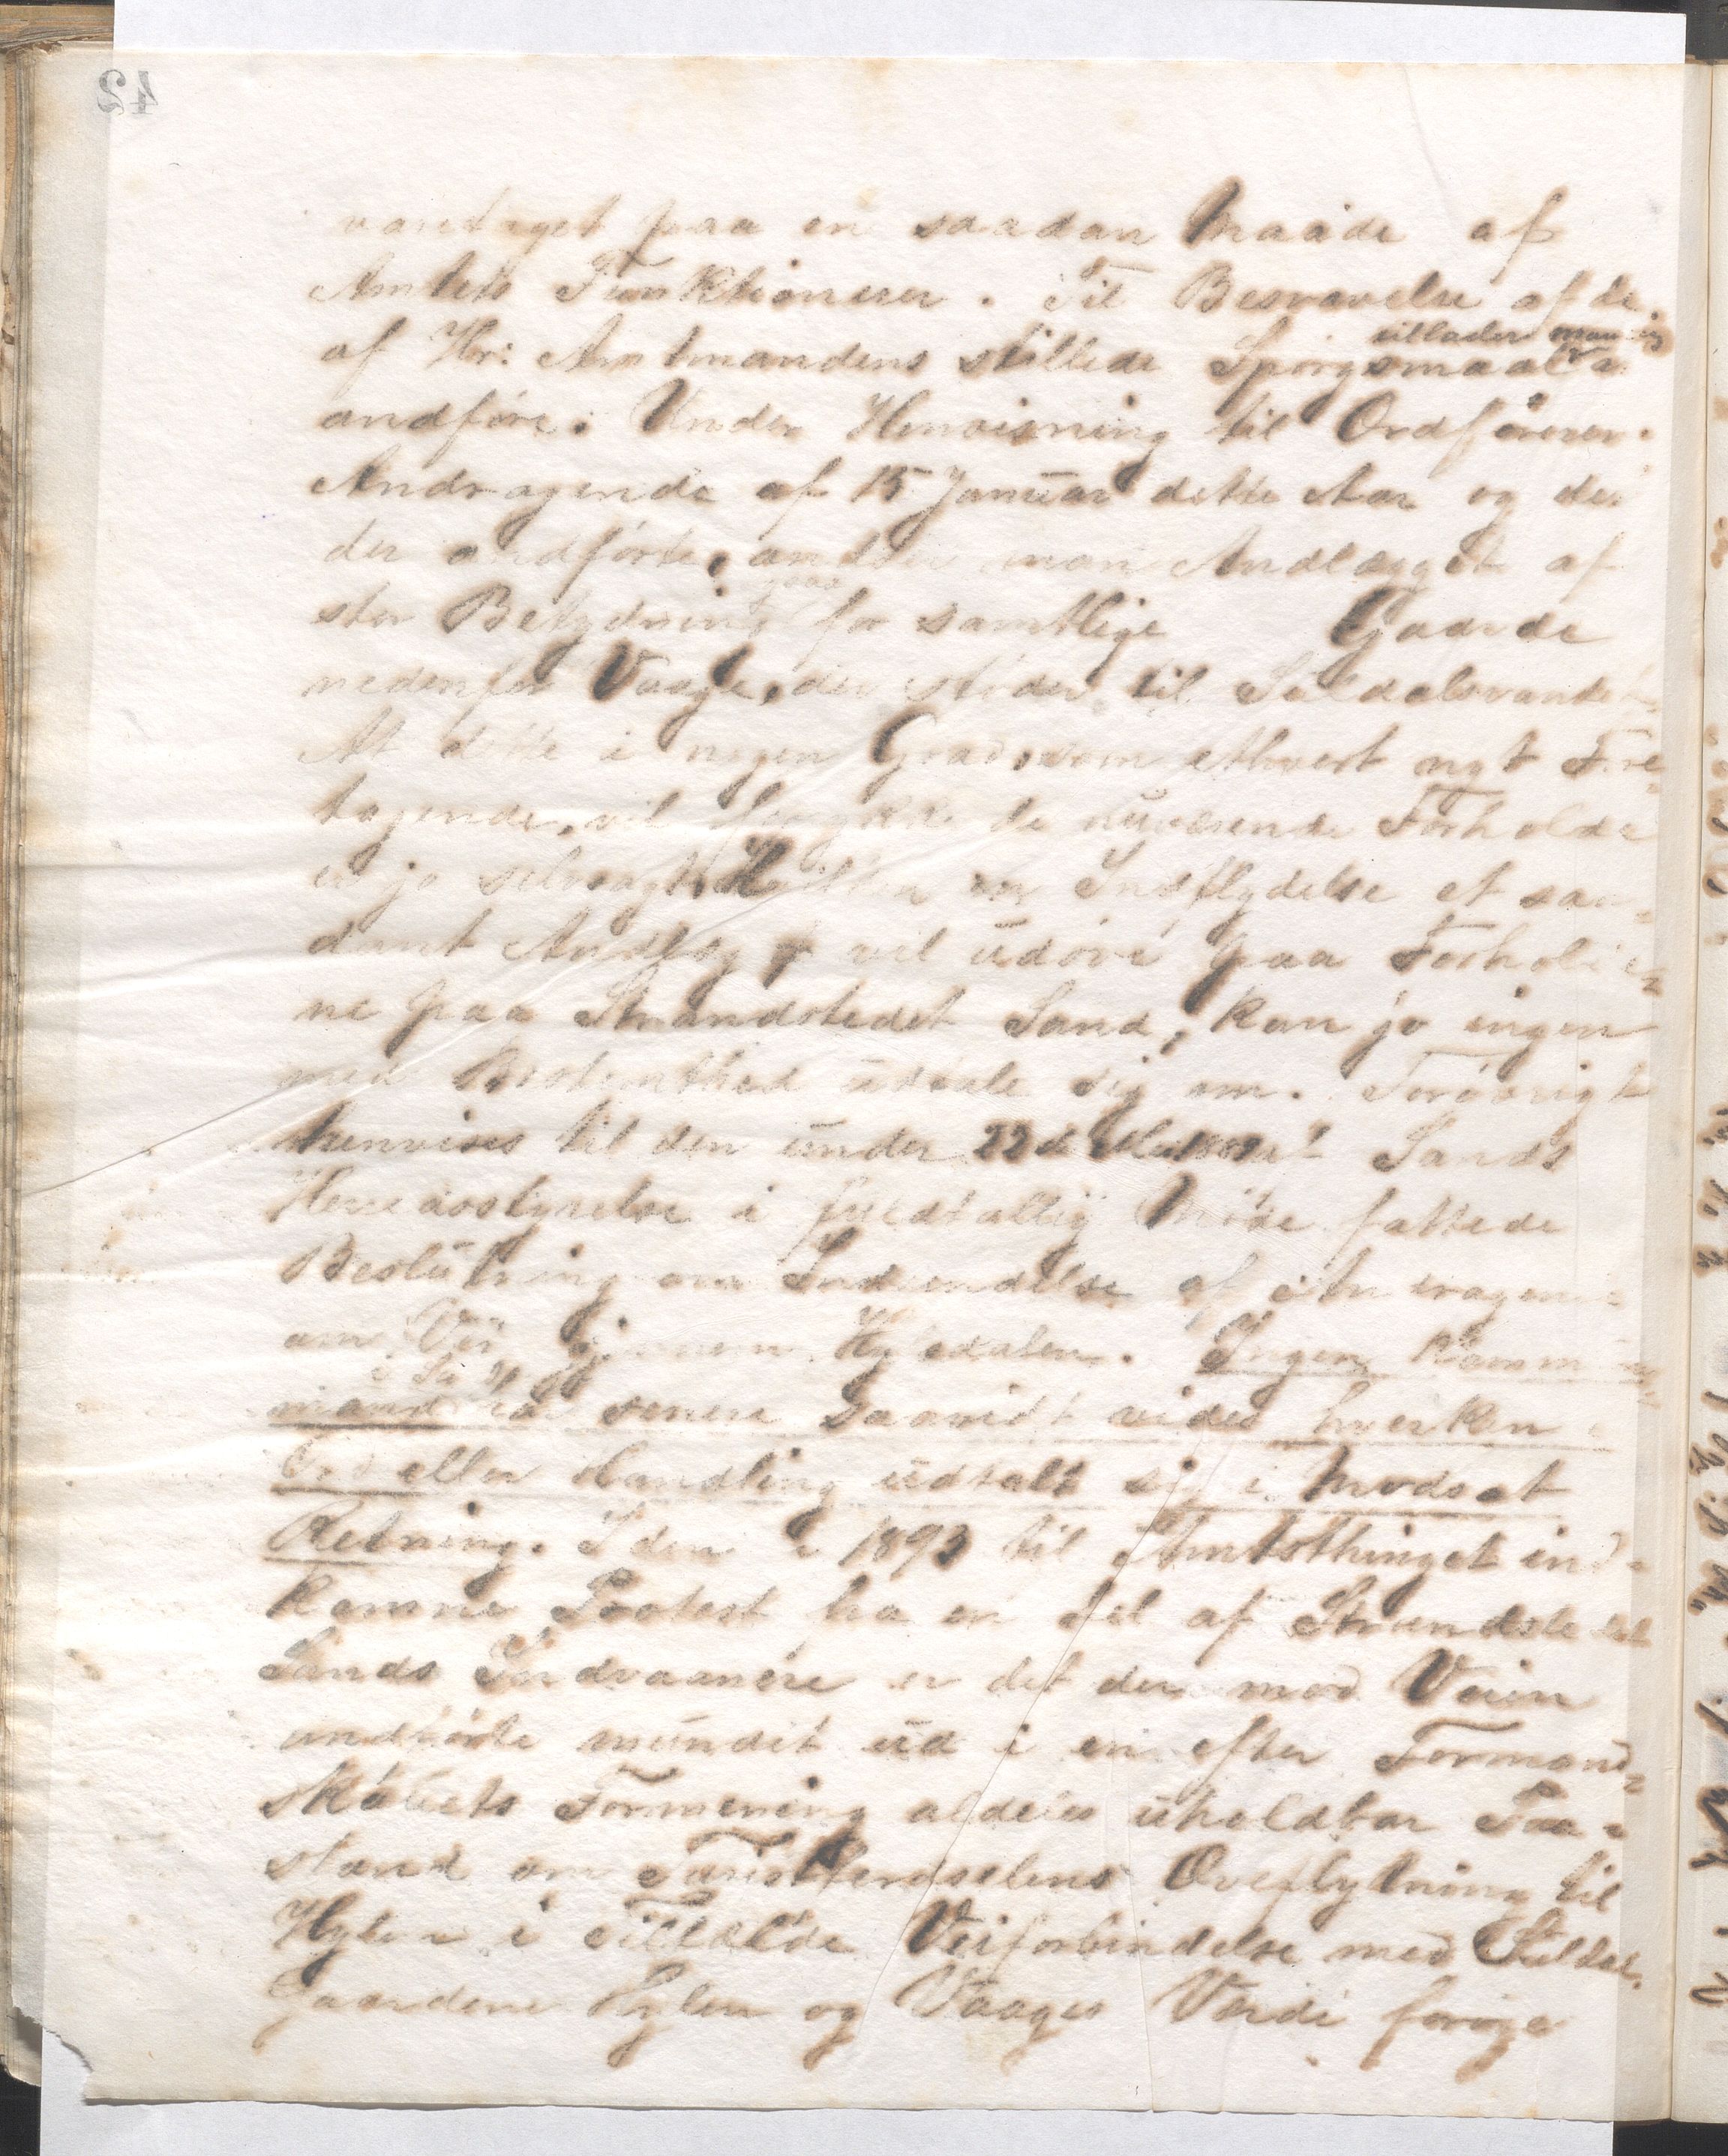 42
varetaget paa en saadan Maade af
Amtets Funktionærer. Til Besvarelse af de
af Hr: Amtmandens stillede Spørgsmaal tillader man sig a
andføre: Under Henvisning til Ordførerens
Andragende af 15 Januar dette Aar og det
der andførte, andser man Andlægget af
stor Betydning for samtlige Gaarde
nedenfor Vaage, der støder til Suldalsvandet.
At dette i nogen Grad, som ethvert nyt Fore-
tagende, vil forrykke de nuværende Forholde
er jo selvsagt. Hvilken en Indflydelse et saa-
dant Andlæg vil udøve paa Forholde-
ne paa Strandstedet Sand, kan jo ingen
med Bestemthed udtale sig om. Forøvrigt
henvises til den under 22de af Sands
Herredsstyrelse i fuldtallig Møde fattede
Beslutning om Indsendelse af Andragende
om Vei gjennem Hylsdalen. Ingen Kommune-
mand har senere saavidt vides hverken i
Ord eller Handling udtalt sig i Modsat
Retning. I den i 1893 til Amtsthinget ind-
komne Protest fra en Del af Strandstedet
Sands Indvaanere er det der mod Veien
andførte mundet ud i en efter Formand-
skabets Formening aldeles uholdbar Paa-
stand om Turistferdselens Overflytning til
Hylen i Tilfælde Veiforbindelse med Suldal.
Gaardene Hylen og Vaages Verdi forøge